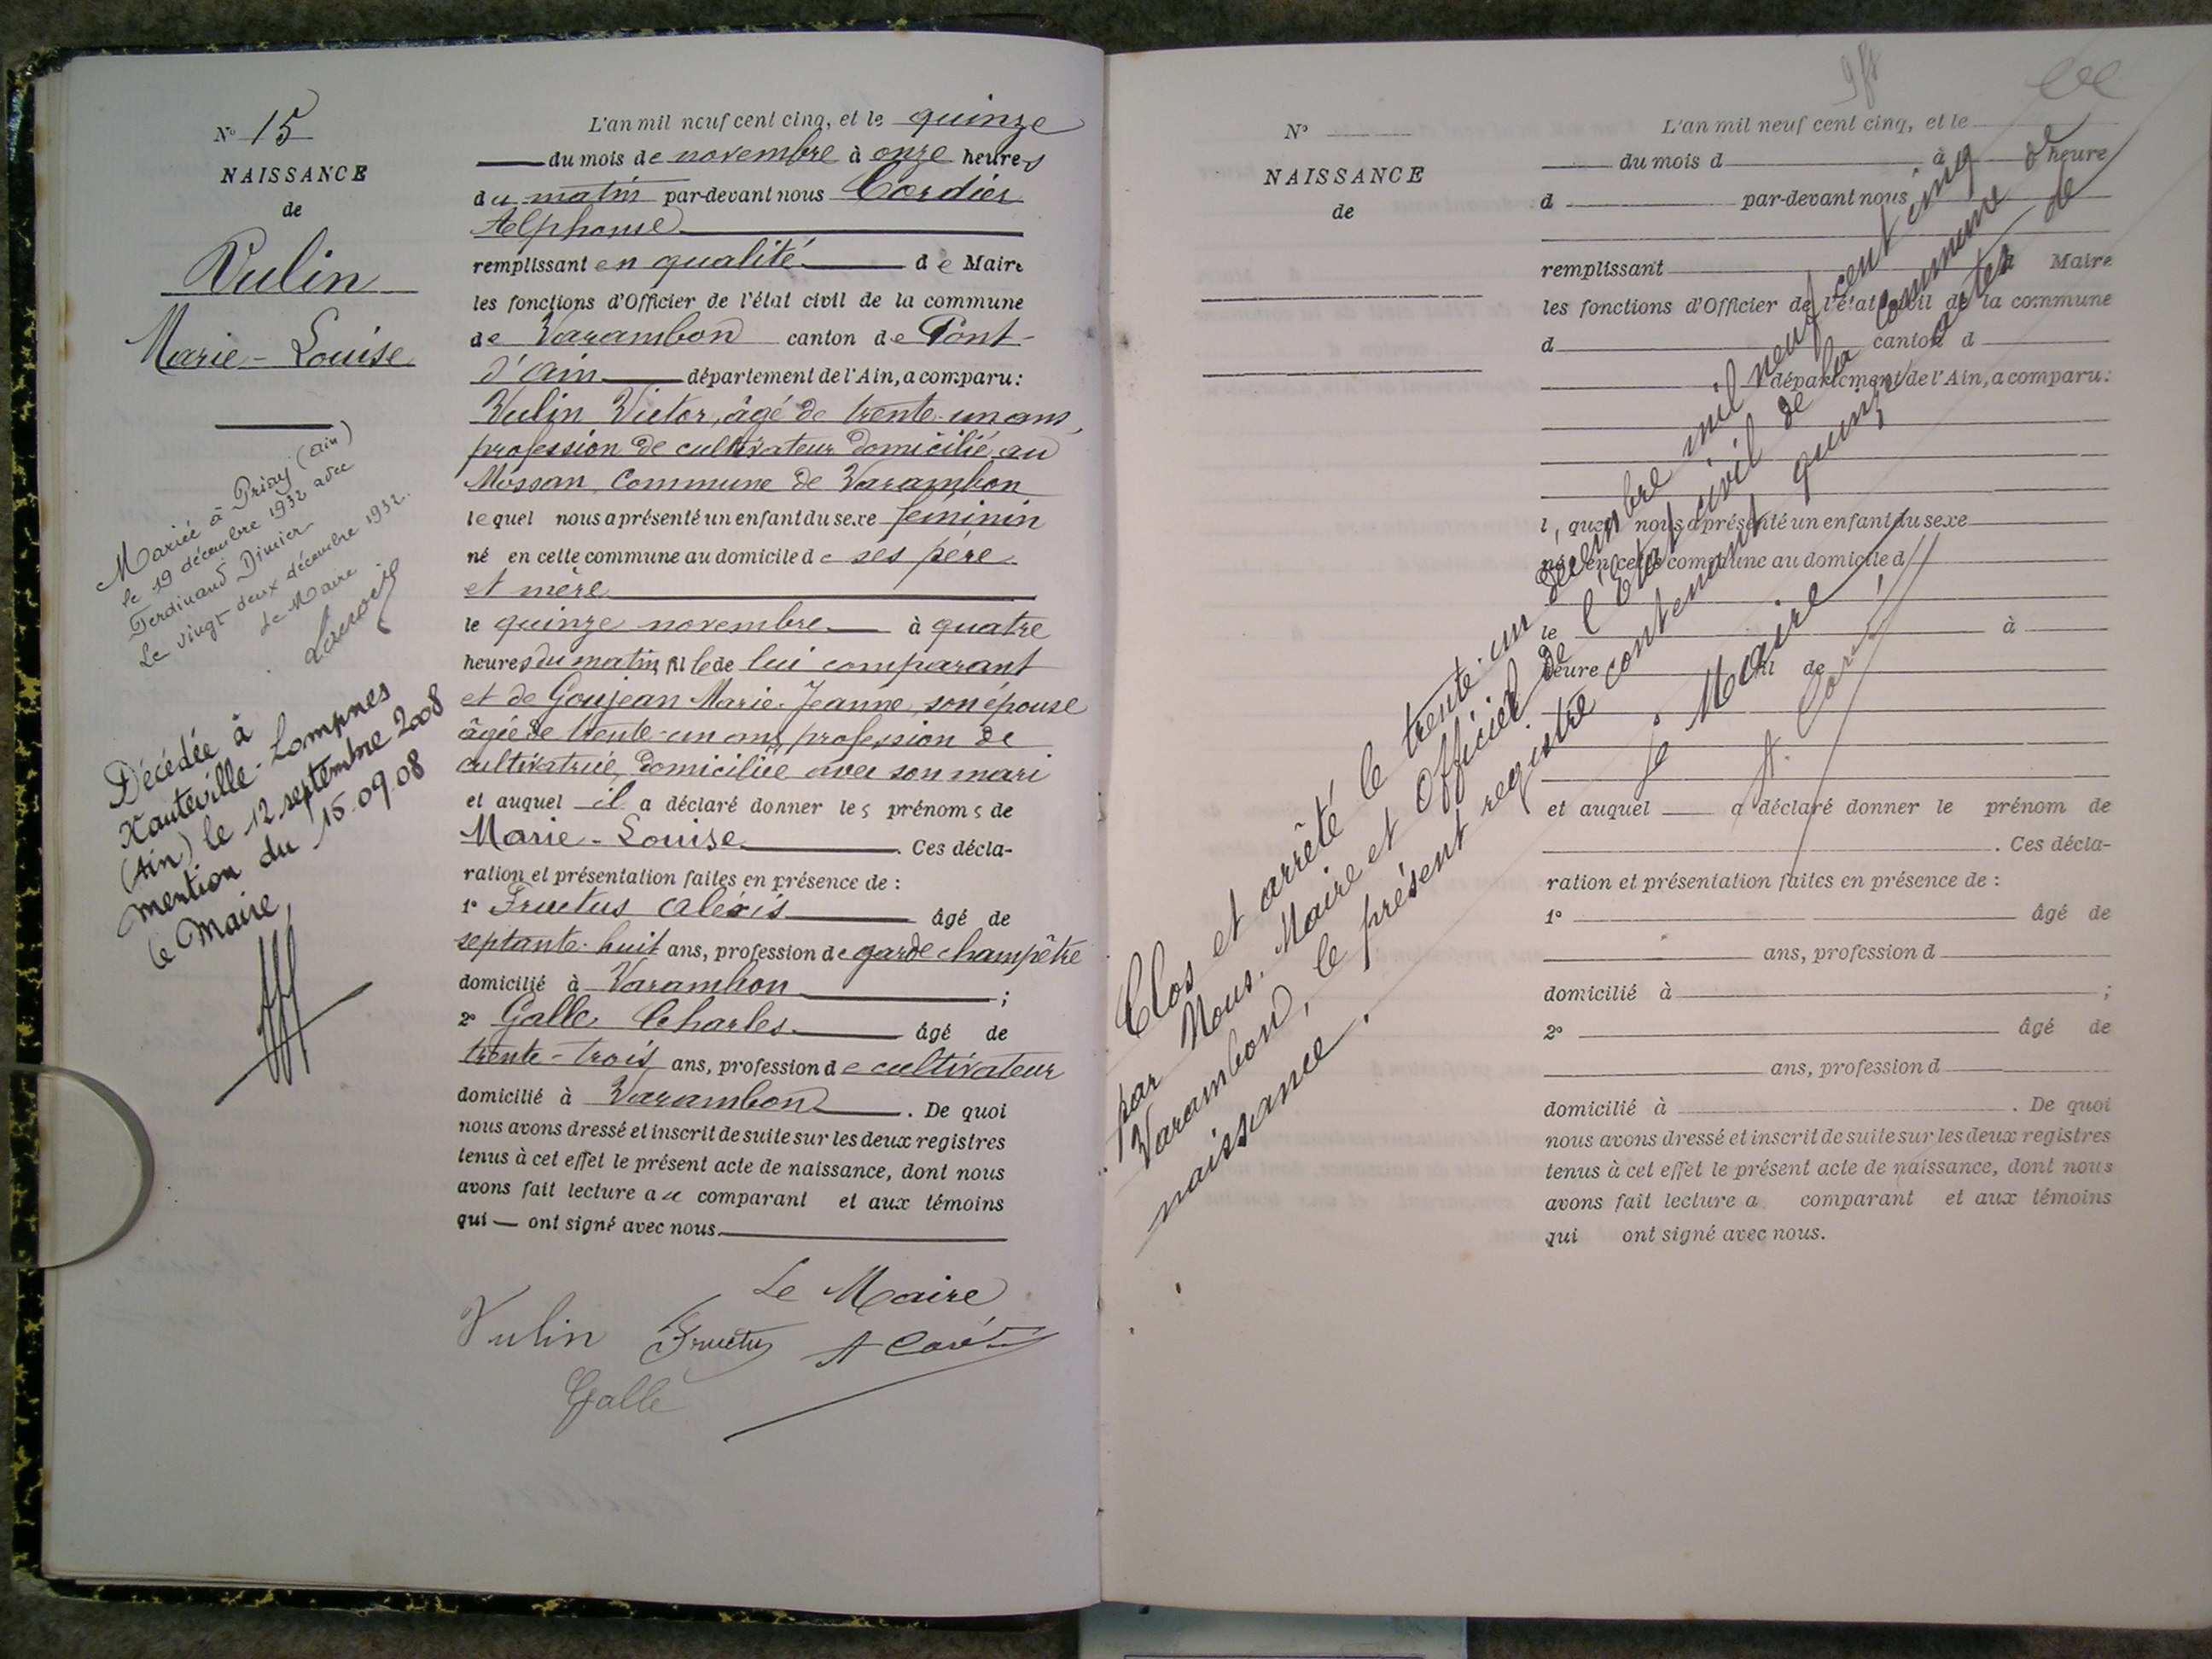 N° 15
NAISSANCE
de
Vulin
Marie-Louise
Mariée à Priay (Ain)
le 19 décembre 1932 avec
Ferdinand Dimier
Le vingt deux décembre 1932.
Le Maire
Décédée à
Hauteville-Lompnes
(Ain) le 12 septembre 2008
mention du 15.09.08
le Maire,
L'an mil neuf cent cinq, et le quinze
du mois de novembre à onze heures
du matin par-devant nous Cordier
Alphonse
remplissant en qualité de Maire
les fonctions d'Officier de l'état civil de la commune
de Varambon canton de Pont-
d'Ain département de l'Ain, a comparu :
Vulin Victor, âgé de trente-un ans,
profession de cultivateur domicilié au
Mossan, Commune de Varambon
lequel nous a présenté un enfant du sexe féminin
né en cette commune au domicile de ses père
et mère
le quinze novembre à quatre
heures du matin, fille de lui comparant
et de Goujean Marie-Jeanne, son épouse
âgée de trente-un ans, profession de
cultivatrice, domiciliée avec son mari
et auquel il a déclaré donner les prénoms de
Marie-Louise. Ces décla-
ration et présentation faites en présence de :
1° Fructus Alexis âgé de
septante-huit ans, profession de garde champêtre
domicilié à Varambon ;
2° Galle Charles âgé de
trente-trois ans, profession de cultivateur
domicilié à Varambon. De quoi
nous avons dressé et inscrit de suite sur les deux registres
tenus à cet effet le présent acte de naissance, dont nous
avons fait lecture au comparant et aux témoins
qui — ont signé avec nous.
Le Maire
Vulin Fructus A
Galle
N°
NAISSANCE
de
L'an mil neuf cent cinq, et le
du mois d à heure
d par-devant nous
remplissant d Maire
les fonctions d'Officier de l'état civil de la commune
d canton d
département de l'Ain, a comparu :
l quel nous a présenté un enfant du sexe
né en cette commune au domicile d
le à
heure fil de
et auquel a déclaré donner le prénom de
. Ces décla-
ration et présentation faites en présence de :
1° âgé de
ans, profession d
domicilié à ;
2° âgé de
ans, profession d
domicilié à . De quoi
nous avons dressé et inscrit de suite sur les deux registres
tenus à cet effet le présent acte de naissance, dont nous
avons fait lecture a comparant et aux témoins
qui ont signé avec nous.
Clos et arrêté le trente-un décembre mil neuf cent cinq
par Nous, Maire et Officier de l'Etat civil de la commune de
Varambon, le présent registre contenant quinze actes de
naissance.
Le Maire
A.